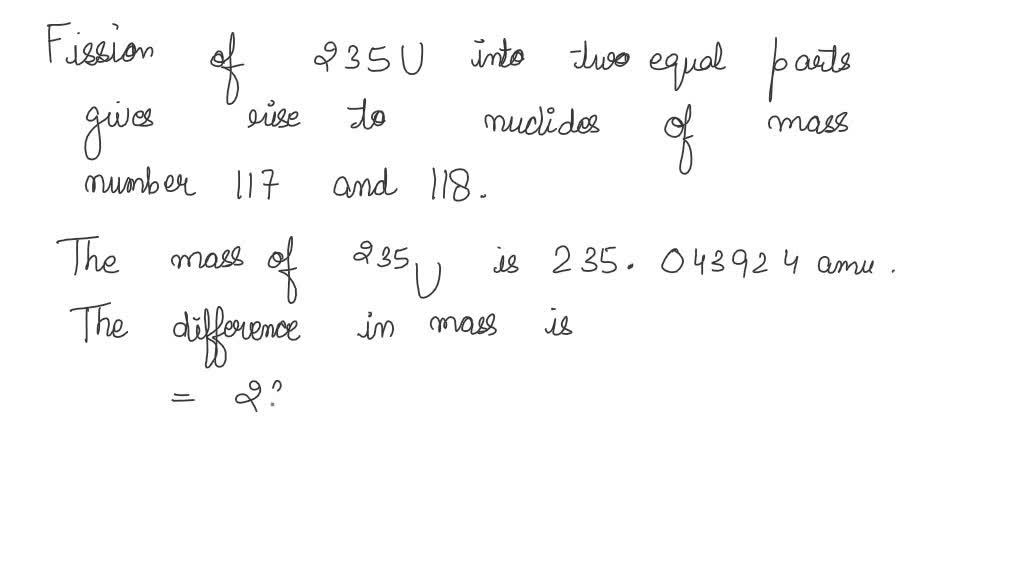 Fission of 235U into two equal parts
gives rise to nuclides of mass
number 117 and 118.
The mass of 235U is 235.043924 amu.
The difference in mass is
= 2